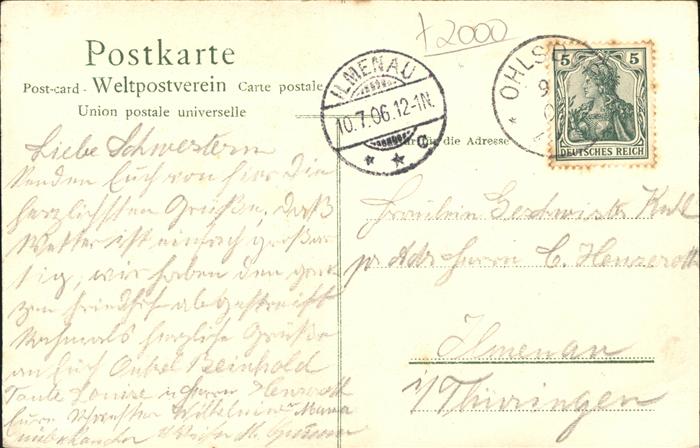 Postkarte
Post-card - Weltpostverein Carte postale
Union postale universelle
+2000
ILMENAU
10.7.06.12-1N.
* * c
OHLSD
*
5 5
DEUTSCHES REICH
für die Adresse
Liebe Schwestern
Senden Euch von hier die
herzlichsten Grüße, daß
Wetter ist einfach großar
tig, wir haben den gan
zen Friedhof abgestreift
Nochmals herzliche Grüße
an Euch Onkel Reinhold
Tante Louise u Herrn
Eure Schwester Wilhelmine Maria
Fräulein Geschwister
pr Adr Herrn C. Henzeroth
Ilmenau
i/Thüringen